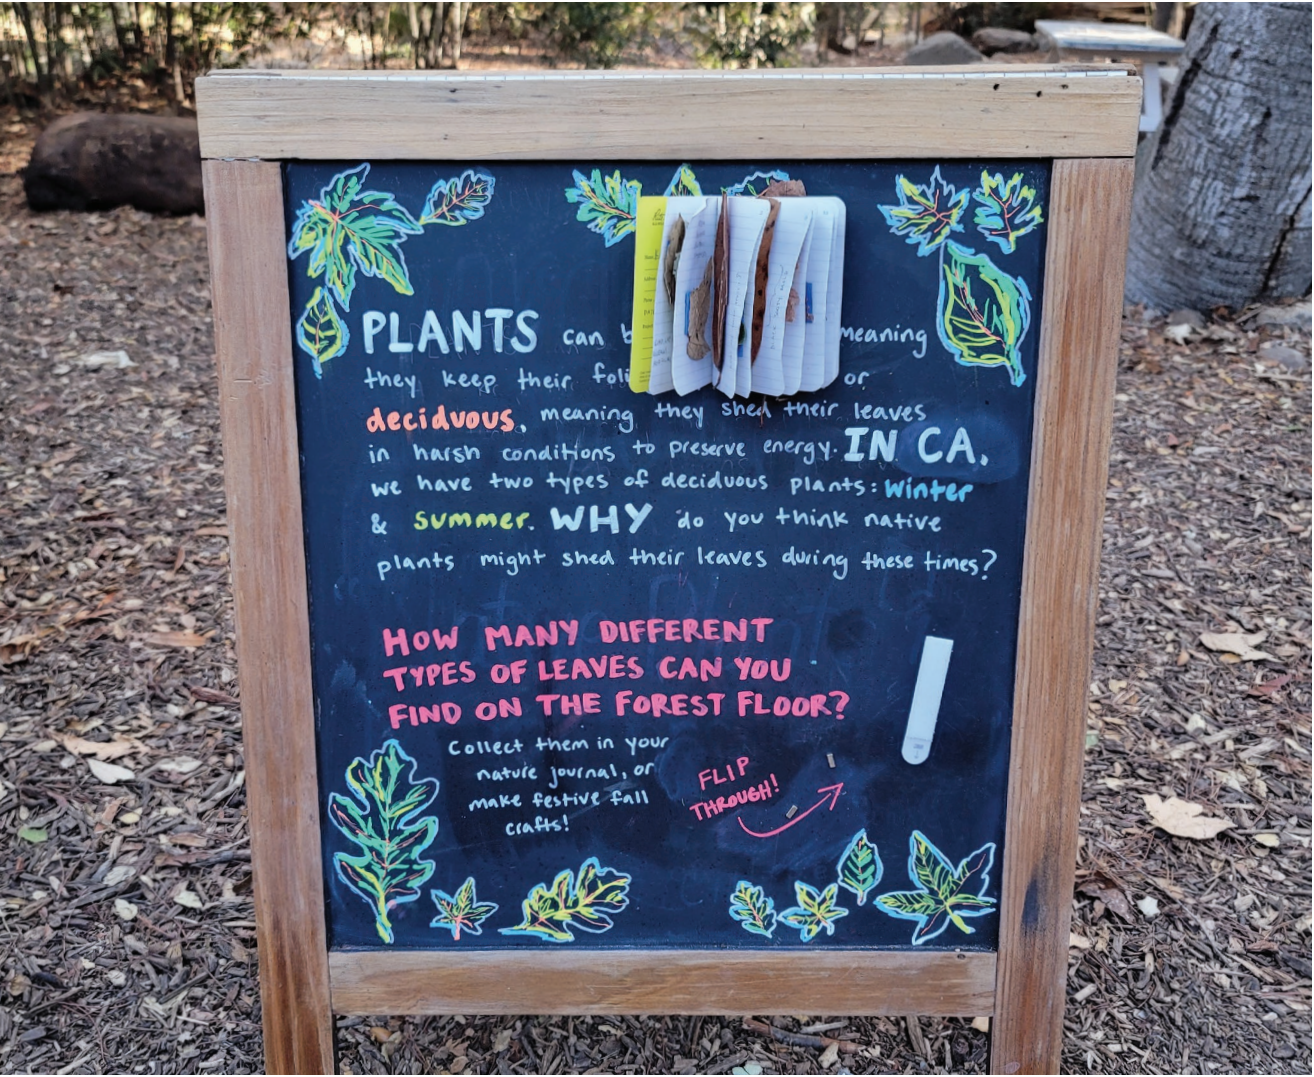 PLANTS can meaning
they keep their or
deciduous, meaning they shed their leaves
in harsh conditions to preserve energy. IN CA,
we have two types of deciduous plants: Winter
& summer. WHY do you think native
plants might shed their leaves during these times?
HOW MANY DIFFERENT
TYPES OF LEAVES CAN YOU
FIND ON THE FOREST FLOOR?
Collect them in your
nature journal, or
make festive fall
crafts!
FLIP
THROUGH!